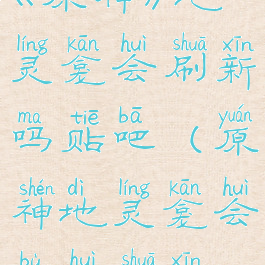 líng kān huì shuā xīn
灵龛会刷新
ma tiē bā yuán
吗贴吧(原
shén dì líng kān huì
神地灵龛会